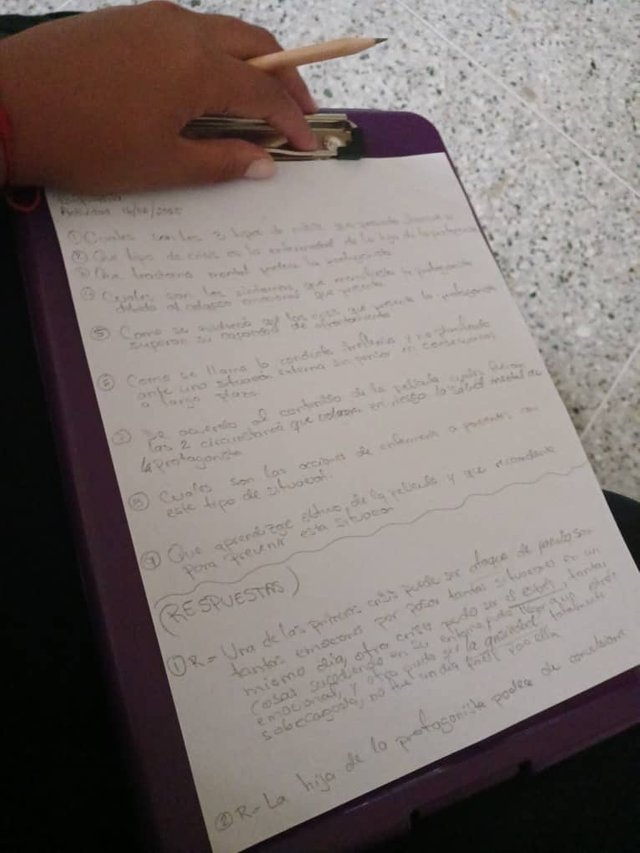 Actividad
① Cuales son los 3 tipos de crisis que presenta
② Que tipo de crisis es la enfermedad de la hija de la protagonista
③ Que trastorno mental padece la protagonista
④ Cuales son los sintomas que manifiesta la protagonista
debido al colapso emocional que presenta
⑤ Como se evidencia que las crisis que presenta la protagonista
superan su capacidad de afrontamiento
⑥ Como se llama la conducta y no planificada
ante una situacion externa sin pensar en consecuencias
a largo plazo
⑦ De acuerdo al contenido de la pelicula cuales fueron
las 2 circunstancias que colocan en riesgo la salud mental de
la protagonista
⑧ Cuales son las acciones de enfermeria a pacientes con
este tipo de situacion.
⑨ Que aprendizaje obtuvo de la pelicula y que recomienda
para prevenir esta situacion
(RESPUESTAS)
① R= Una de las primeras crisis puede ser ataque de panico son
tantas emociones por pasar tantas situaciones en un
mismo dia, otra crisis puede ser el estres, tantas
cosas sucediendo en su entorno puede llegar a un
emocional, y otra puede ser la totalmente
no fue un dia facil para ella
② R- La hija de la protagonista padece de convulsiones